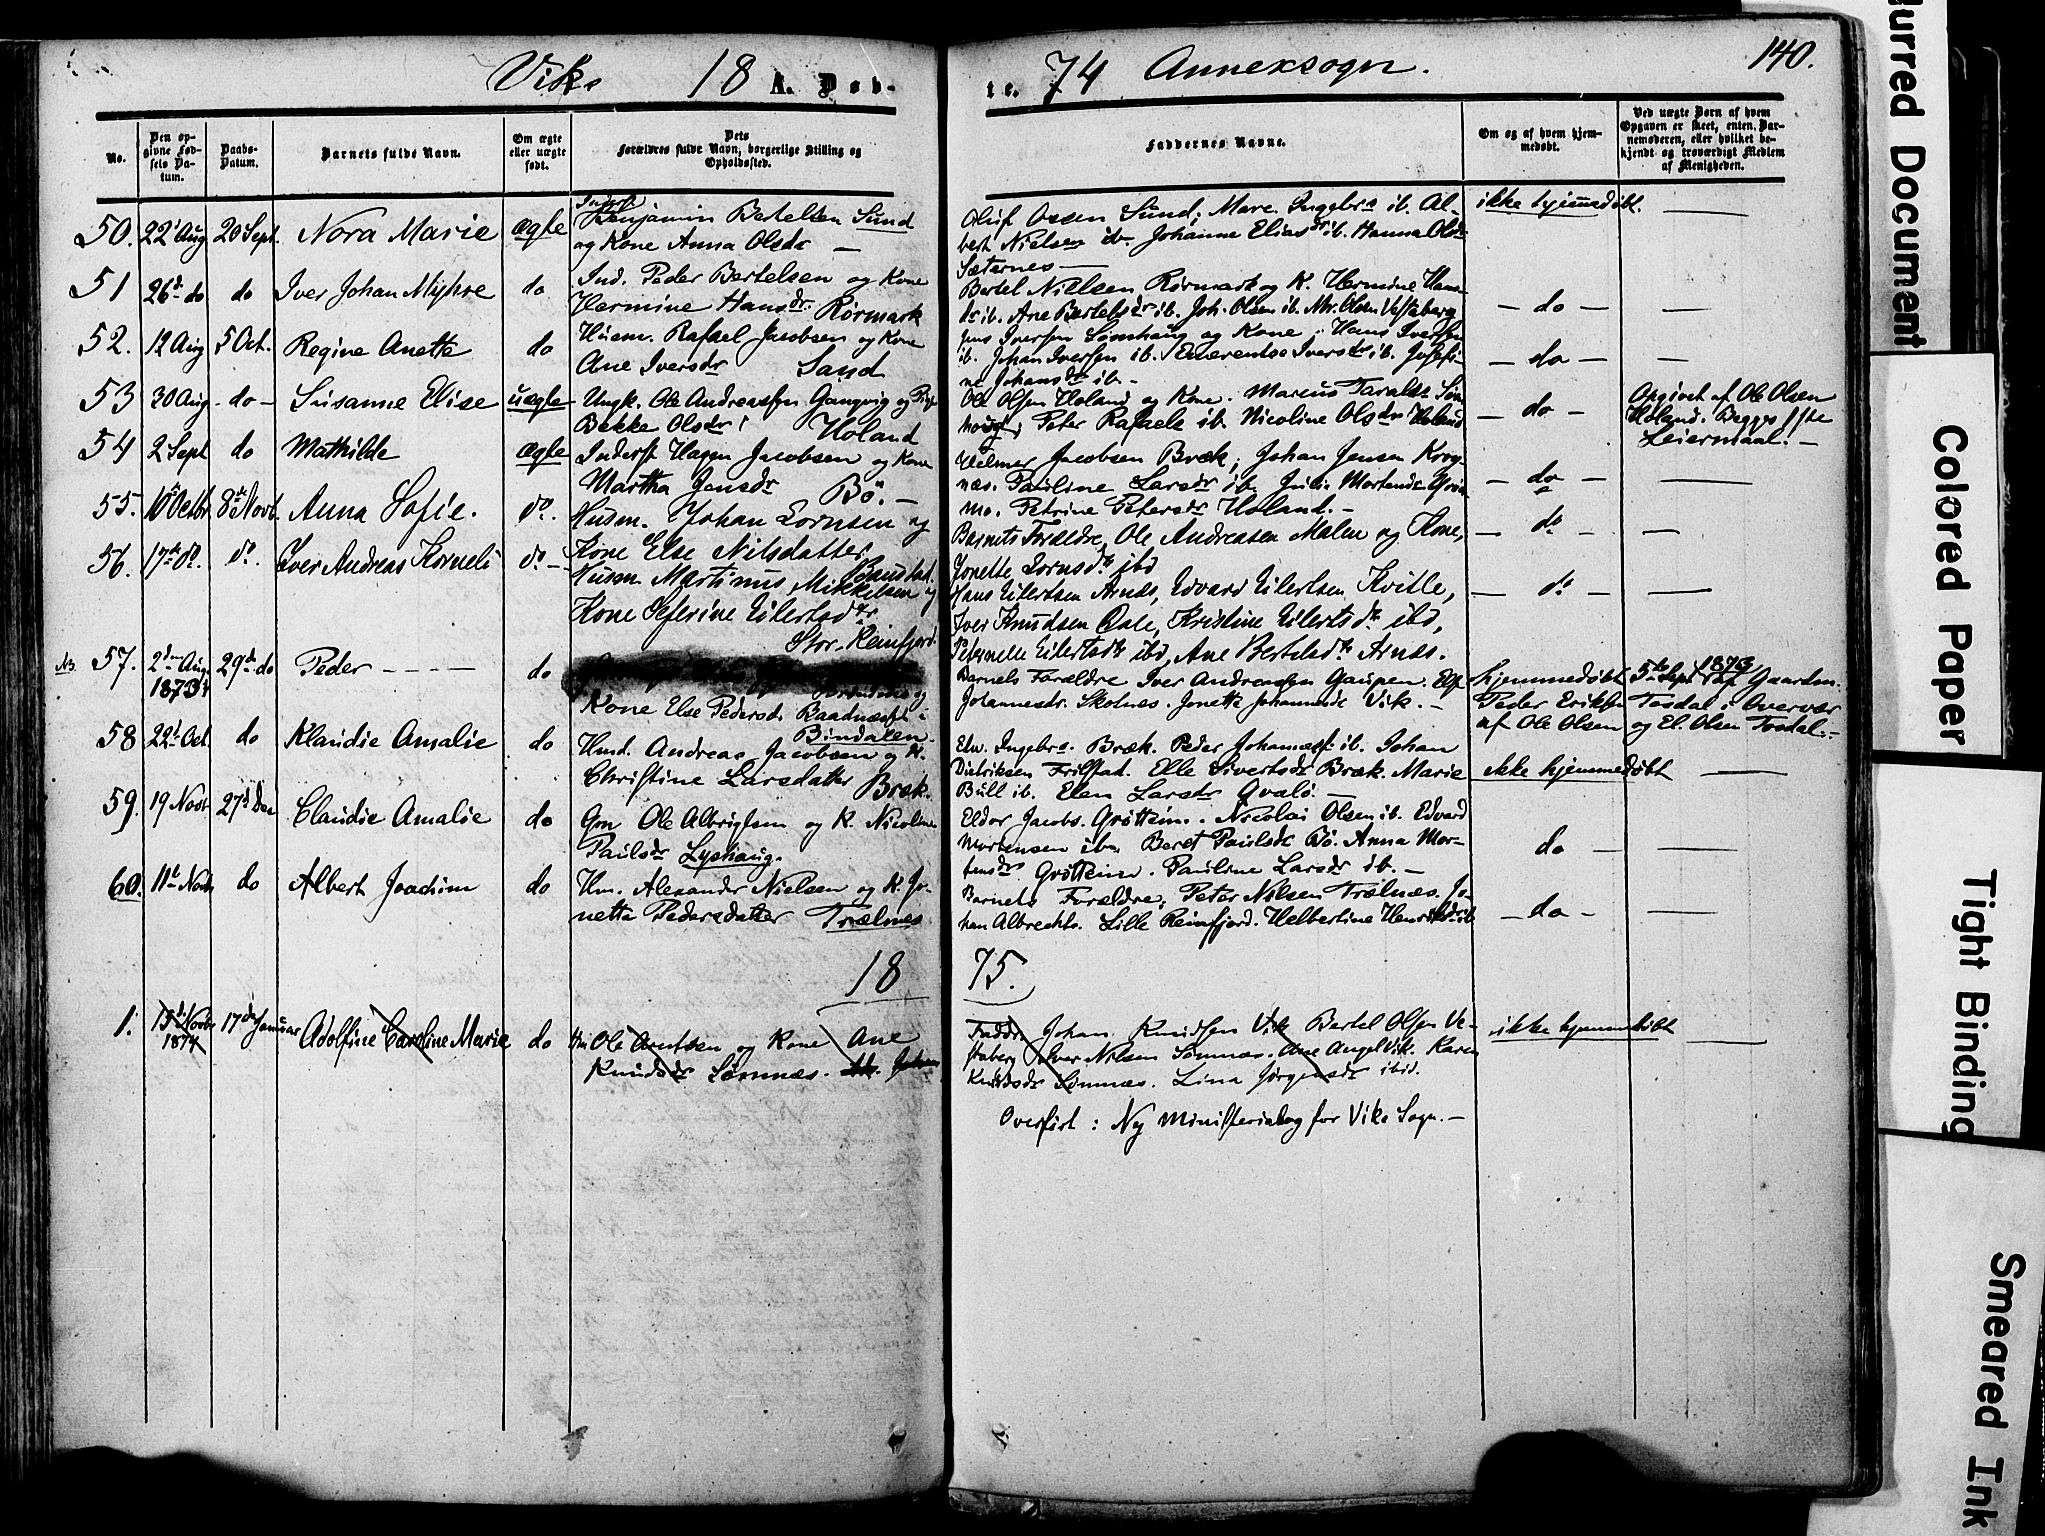 Viks 18 A. Døb-
te. 74 Annexsogn. 140.
No.
Den op-
givne Fød-
sels Da-
tum.
Daabs-
Datum.
Barnets fulde Navn.
Om ægte
eller uægte
født.
Dets
Forældres fulde Navn, borgerlige Stilling og
Opholdssted.
Faddernes Navne.
Om og af hvem hjem-
medøbt.
Ved uægte Børn af hvem
Opgaven er skeet, enten Bar-
nemoderen, eller hvilket be-
kjendt og troværdigt Medlem
af Menigheden.
50. 22 Aug 20 Sept. Nora Marie ægte
Inderst Benjamin Bertelsen Sund
og Kone Anna Olsdr —
Oluf Olsen Sund, Mare. Ingebr. ib. Al-
bert Nielsen ib. Johanne Eliasdr ib. Hanna Olsdr
Sæternes —
ikke hjemmedøbt. —
51 26d do do Iver Johan Myhre do
Ind. Peder Bertelsen og Kone
Hermine Hansdr. Rörmark
Bertel Nielsen Rörmark og K. Hermine Han-
dr ib. Ane Bertelsdr ib. Joh. Olsen ib. Mr. Olsen Vestaberg
— do — —
52. 12 Aug 5 Oct. Regine Anette do
Huusm. Rafael Jacobsen og Kone
Ane Iversdr Sand
Jens Iversen Sömhaug og Kone. Hans Iversen
ib. Johan Iversen ib. Emerentse Iversdr ib. Josefi-
ne Johansdr ib. —
— do — —
53 30 Aug - do - Susanne Elise uægte
Ungk. Ole Andreassen Gangvig og Pige
Bekke Olsdr Holand
Ole Olsen Holand og Kone. Marcus Taralds. Söm
Peter Rafaels. ib. Nicoline Olsdr Holand
— do —
Opgivet af Ole Olsen
Holand. Begges 1ste
Leiermaal. —
54 2 Sept do Mathilde ægte
Inderst Hagen Jacobsen og Kone
Martha Jensdr Bö. —
Helmer Jacobsen Bræk; Johan Jensen Krog-
næs. Pauline Larsdr ib. Julie Mortensdr
Petrine Petersdr Holand. —
— do — —
55. 10de Octbr 8de Novb. Anna Sofie. do.
Husm. Johan Lornsen og
Kone Else Nilsdatter
Baustad.
Barnets Forældre, Ole Andreasen Malm og Kone,
Jonette Lornsdtr ibd
— do — —
56. 17de do. do. Iver Andreas Korneli do —
Husm. Martinus Mikkelsen og
Kone Seferine Eilertsdtr
Stor-Reinfjord.
Hans Eilertsen Arnes, Edvard Eilertsen Kvitle,
Iver Knudsen Dale, Kristine Eilertsdtr ibd,
Peternelle Eilertsdtr ibd, Ane Bertelsdtr Arnes.
— do — —
NB 57. 2den Aug 1873 29de do Peder - - - - do
Kone Else Pedersd. Baadnæsset i
Bindalen.
Barnets Forældre Iver Andreassen Gaupen. Else
Johannesdr. Skolnes. Jonetta Johannesdr Vik. —
Hjemmedøbt 5te Sept 1873 af Gaardm.
Peder Eriksen Tosdal i Overvær
af Ole Olsen og El. Olsen Tosdal. —
58 22d Oct. do Klaudie Amalie do
Husd. Andreas Jacobsen og K.
Christine Larsdatter Bræk.
Elw. Ingebr. Bræk. Peder Johannesen ib. Johan
Didriksen Frilstad. Elle Sivertsdr Bræk. Marie
Bull ib. Elen Larsdr Qvalö. —
ikke hjemmedøbt —
59. 19 Novbr 27d Dec Claudie Amalie do
Gm Ole Albrigtsen og K. Nicoline
Paulsdr Lyshaug.
Eldor Jacobs. Gröttem. Nicolai Olsen ib. Edvard
Mortensen ibm. Beret Paulsdr Bö. Anna Mor-
tensdr Gröttem. Pauline Larsdr ib. —
do — —
60. 11t Novb do Albert Joachim do
Hm. Alexander Nielsen og K. Jo-
netta Pedersdatter Trælnes
Barnets Forældre; Peter Nilsen Trælnæs. Jo-
han Albrechts. Lille Reinfjord. Helbertine Henriksdr ib
— do — —
18 75.
1. 15d Novbr 1874 17de Januar Adolfine Caroline Marie do
Hm Ole Arntsen og Kone Ane
Knudsdr Sömnæs.
Faddr Johan Knudsen Vik Bertel Olsen Ve-
staberg Iver Nilsen Sömnæs. Ane Angel Vik. Karen
Knudsdr Sömnæs. Lina Jörgensdr ibid.
ikke hjemmedøbt —
Overført: Ny Ministerialbog for Viks Sogn. —
Blurred Document
Colored Paper
Tight Binding
Smeared Ink